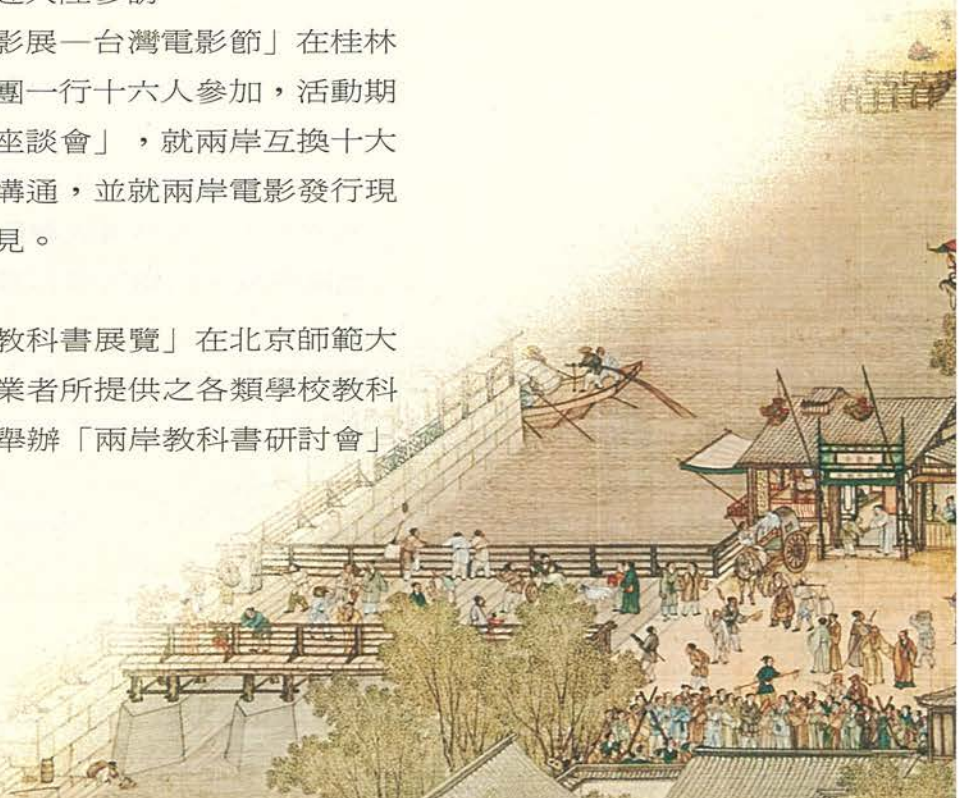 影展—台灣電影節」在桂林
團一行十六人參加，活動期
座談會」，就兩岸互換十大
溝通，並就兩岸電影發行現
見。
教科書展覽」在北京師範大
業者所提供之各類學校教科
舉辦「兩岸教科書研討會」